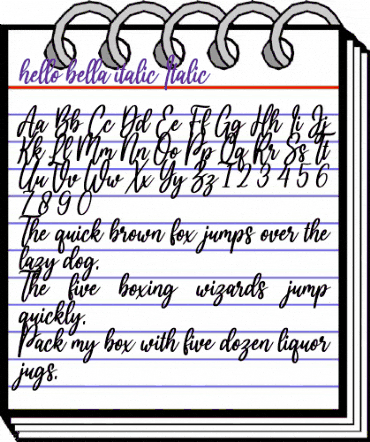 hello bella italic Italic
Aa Bb Cc Dd Ee Ff Gg Hh Ii Jj
Kk Ll Mm Nn Oo Pp Qq Rr Ss Tt
Uu Vv Ww Xx Yy Zz 1 2 3 4 5 6
7 8 9 0
The quick brown fox jumps over the
lazy dog.
The five boxing wizards jump
quickly.
Pack my box with five dozen liquor
jugs.